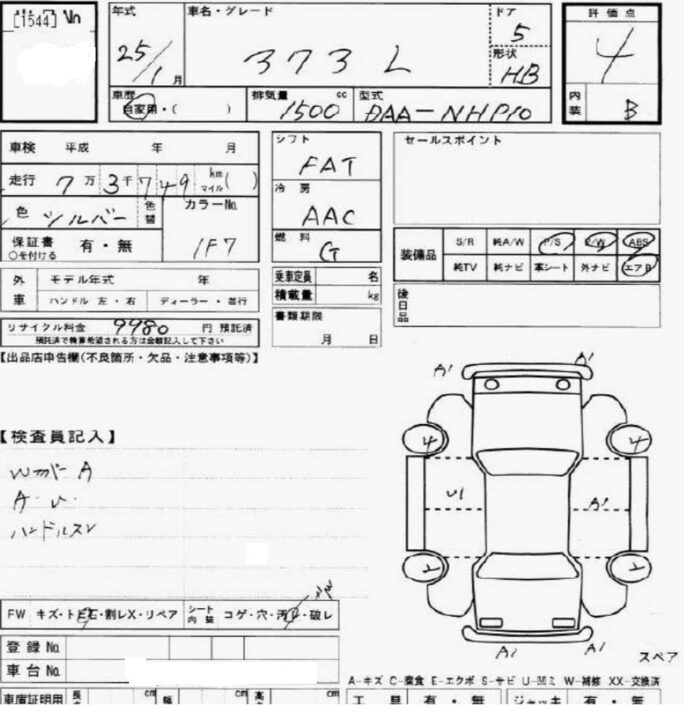 [1544] No
年式
25/1月
車名・グレード
373 L
ドア
5
形状
HB
評価点
4
内装
B
車歴
自家用・( )
排気量 cc
1500
型式
DAA-NHP10
車検 平成 年 月
走行 7万3千749 km マイル( )
色 シルバー 色替
カラーNo.
1F7
保証書 有・無
○を付ける
シフト
FAT
冷房
AAC
燃料
G
セールスポイント
装備品
S/R 純A/W P/S P/W ABS
純TV 純ナビ 革シート 外ナビ エアB
外車
モデル年式 年
ハンドル 左・右 ディーラー・並行
乗車定員 名
積載量 kg
後日品
リサイクル料金 9980 円 預託済
預託済で精算希望される方は金額記入して下さい
書類期限
月 日
【出品店申告欄(不良箇所・欠品・注意事項等)】
A1 A1
4 4
【検査員記入】
A
A・U・
ハンドルスレ
U1 A1
FW キズ・トビ石・割レX・リペア
シート内装 コゲ・穴・汚レ・破レ
A1 A1
スペア
登録No.
車台No.
A-キズ C-腐食 E-エクボ S-サビ U-凹ミ W-補修 XX-交換済
車庫証明用 長 cm 幅 cm 高 cm
工具 有・無 ジャッキ 有・無